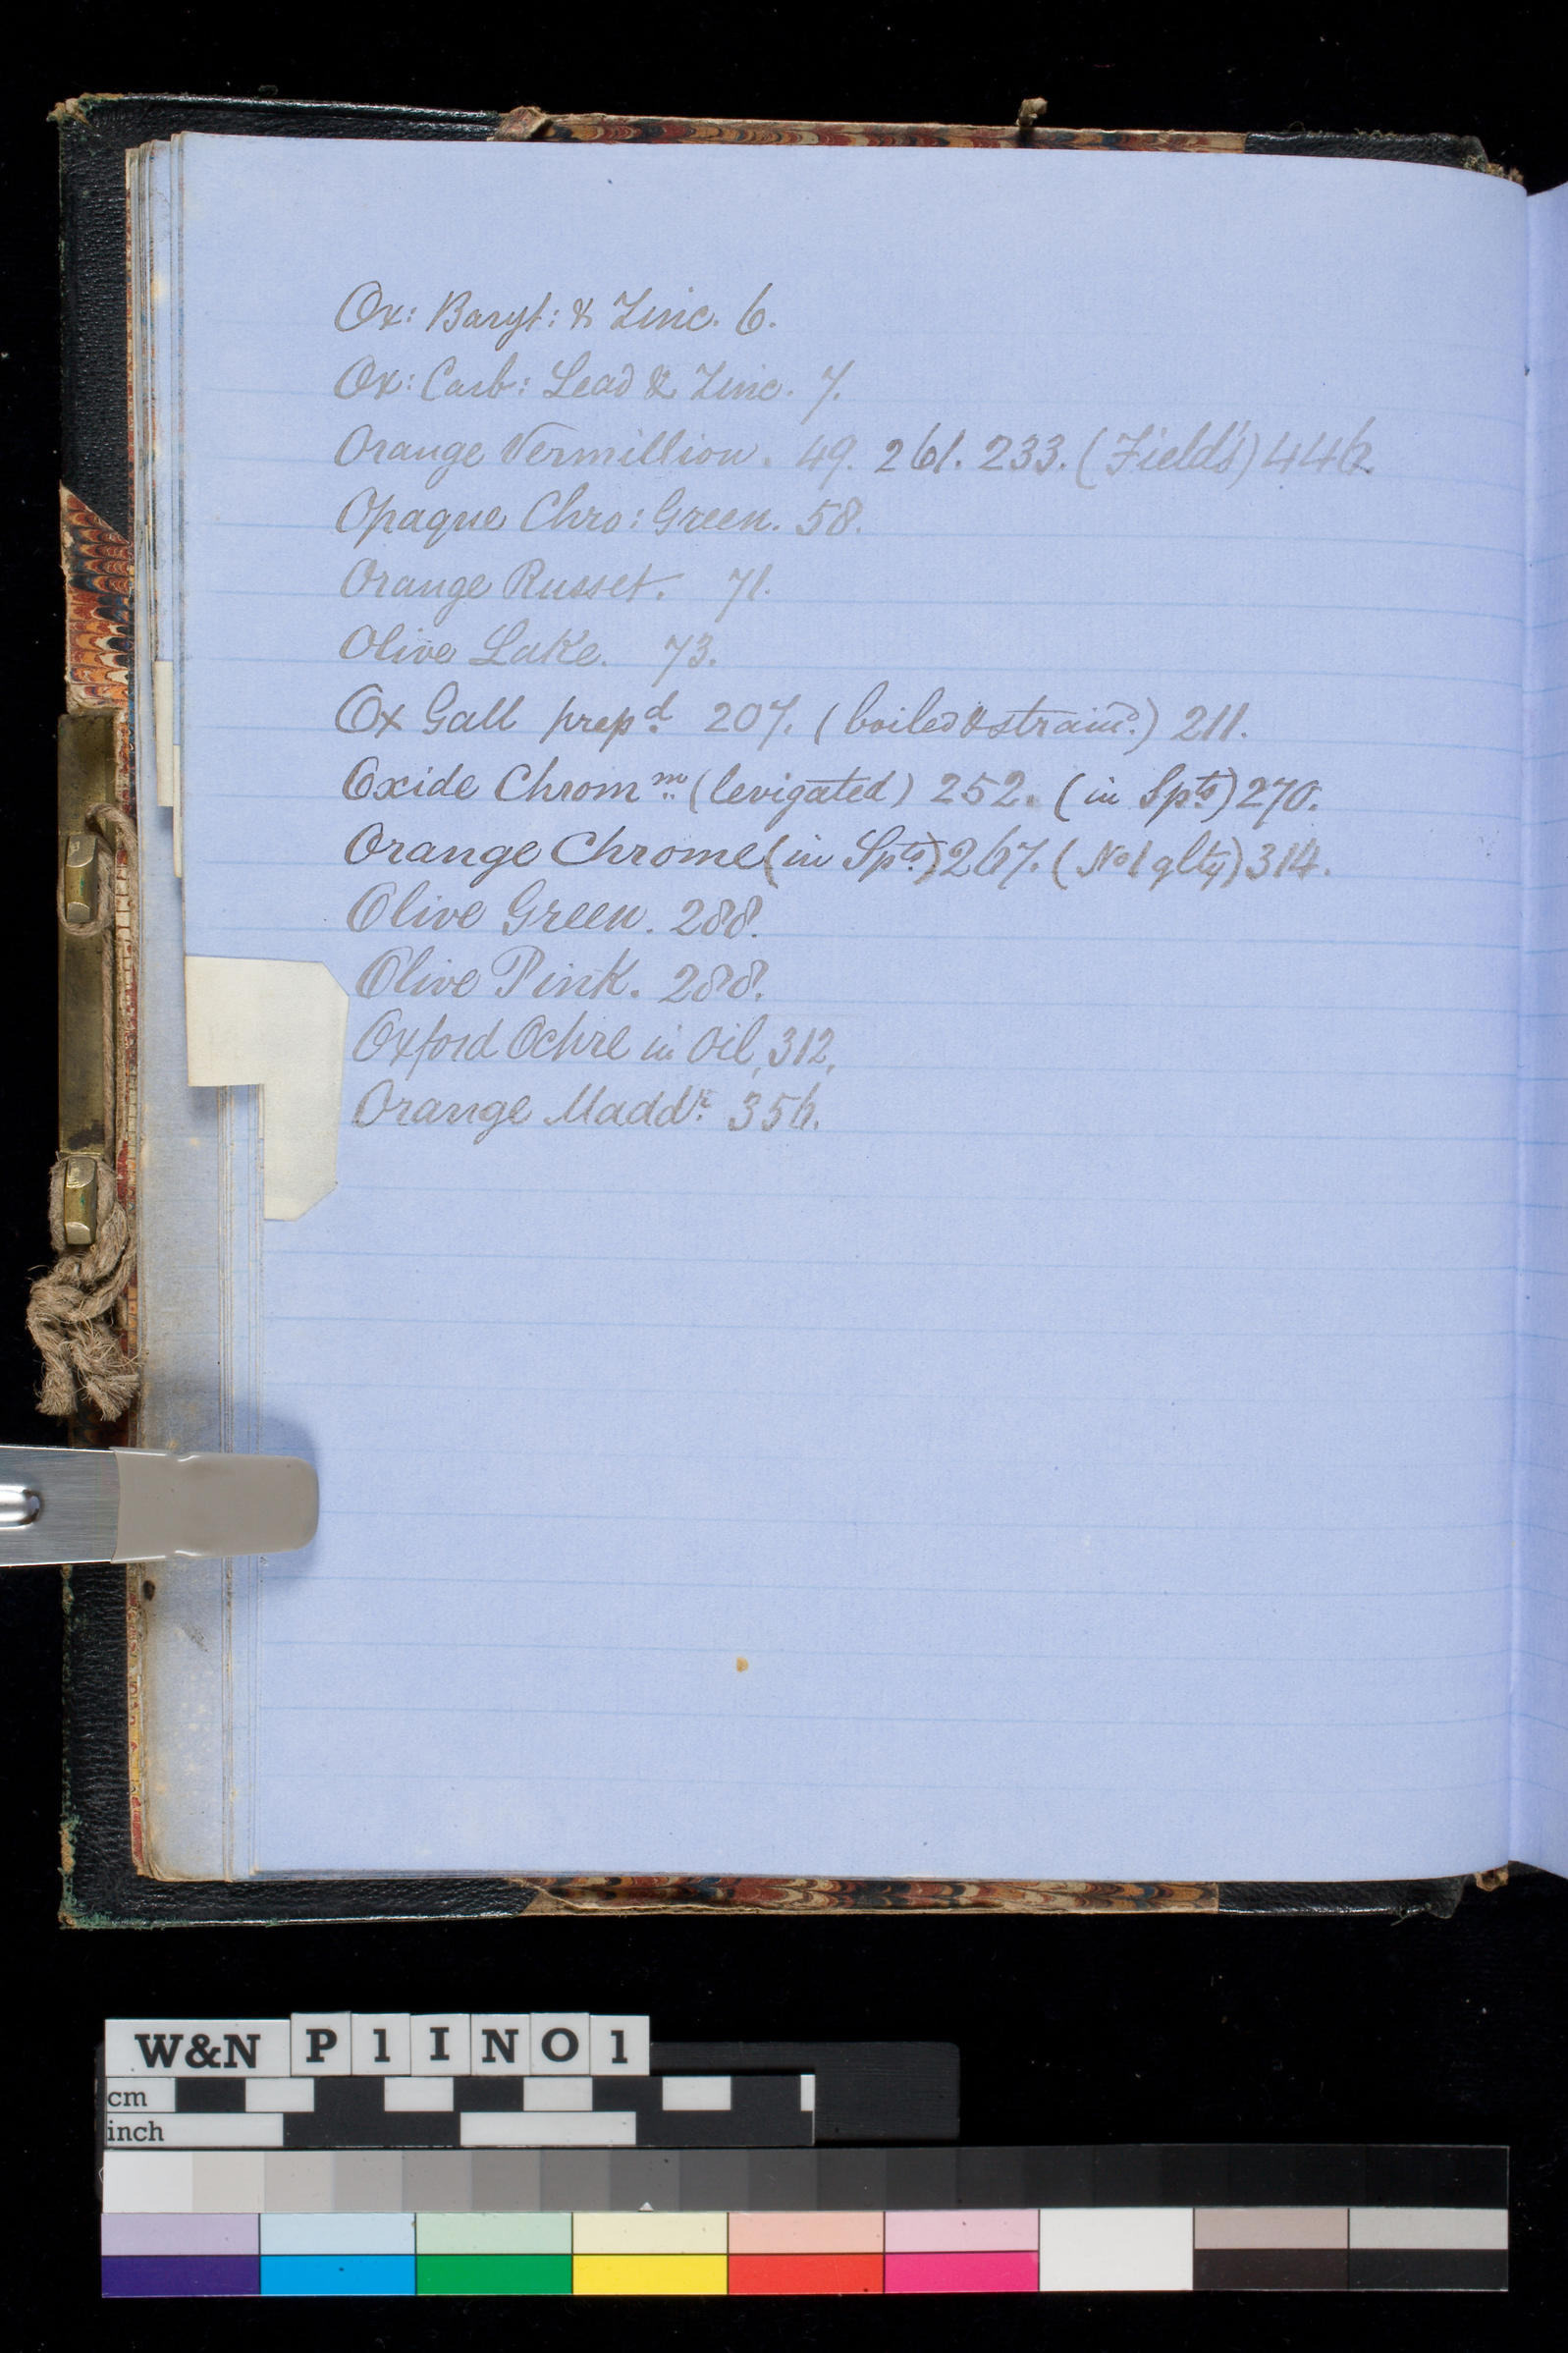 Ox: Baryt: & Zinc. 6.
Ox: Carb: Lead & Zinc. 7.
Orange Vermillion. 49. 261. 233. (Field's) 446.
Opaque Chro: Green. 58.
Orange Russet. 71.
Olive Lake. 73.
Ox Gall prepd. 207. (boiled & straind.) 211.
Oxide Chromm. (levigated) 252. (in Spts.) 270.
Orange Chrome (in Spts.) 267. (No 1 qlty) 314.
Olive Green. 288.
Olive Pink. 288.
Oxford Ochre in Oil, 312,
Orange Maddr. 356.
W&N P1INO1
cm
inch